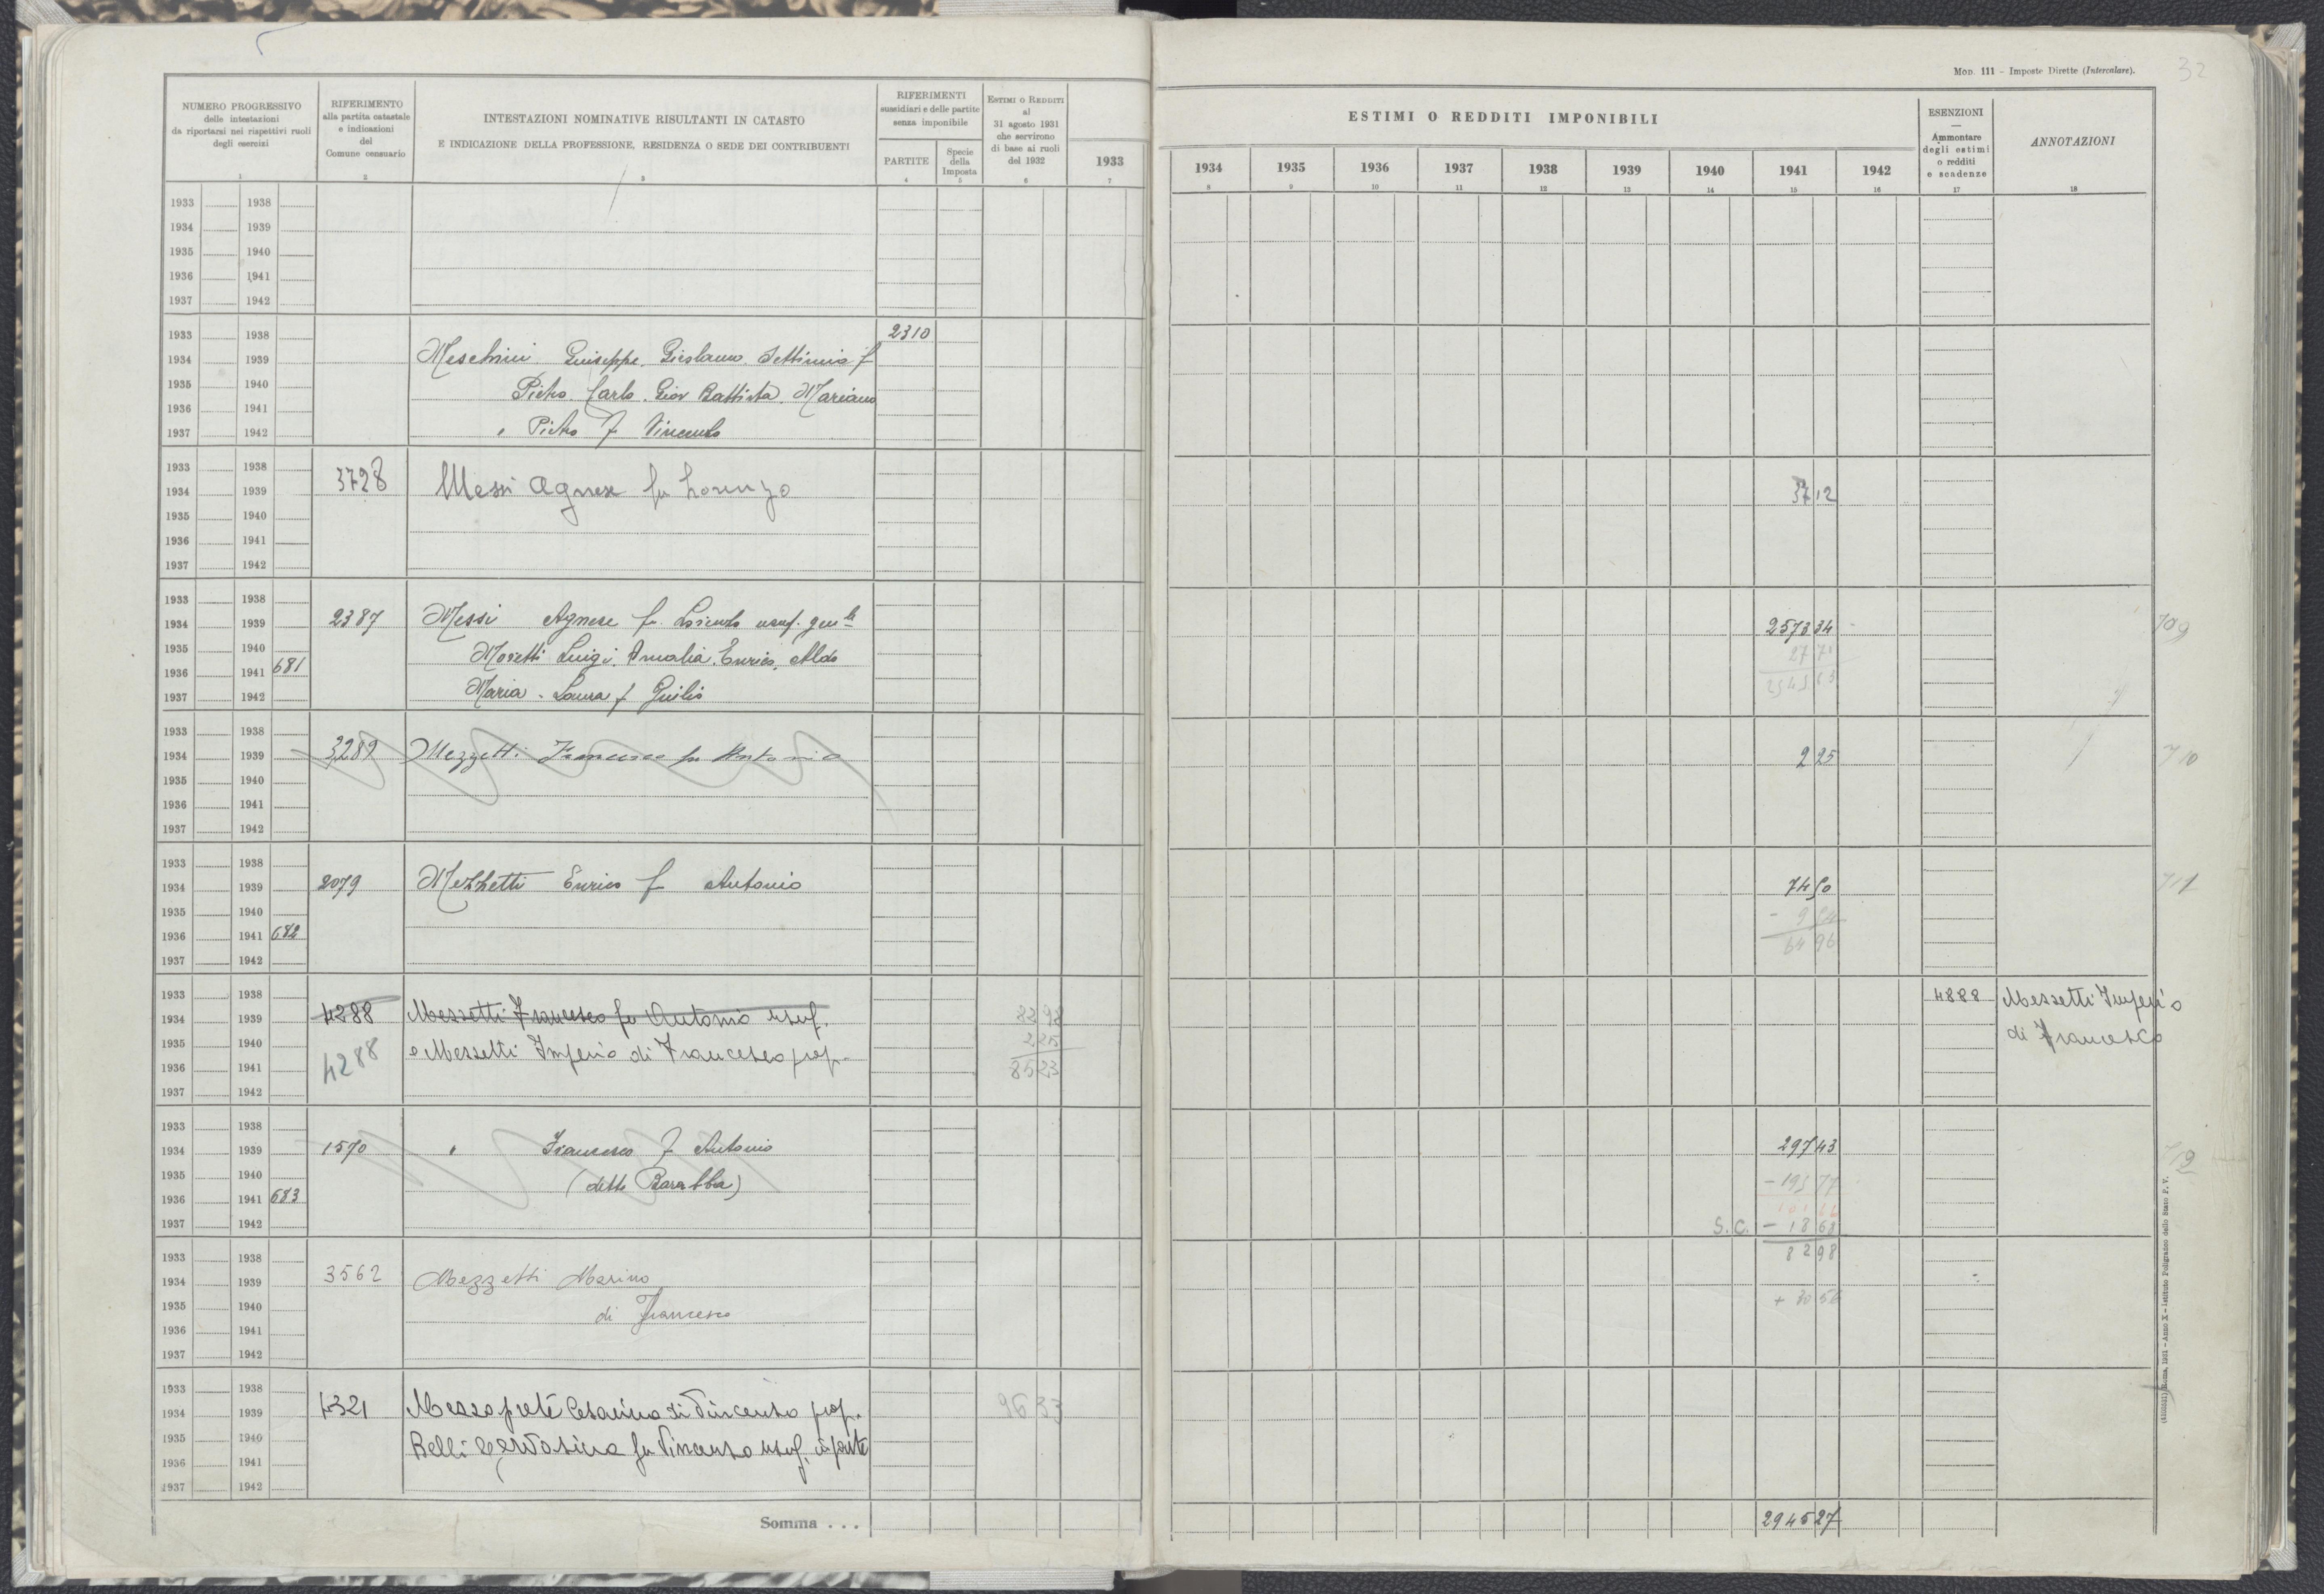 Mod. 111 – Imposte Dirette (Intercalare).
32
NUMERO PROGRESSIVO
delle intestazioni
da riportarsi nei rispettivi ruoli
degli esercizi
1
RIFERIMENTO
alla partita catastale
e indicazioni
del
Comune censuario
2
INTESTAZIONI NOMINATIVE RISULTANTI IN CATASTO
E INDICAZIONE DELLA PROFESSIONE, RESIDENZA O SEDE DEI CONTRIBUENTI
3
RIFERIMENTI
sussidiari e delle partite
senza imponibile
PARTITE
4
Specie
della
Imposta
5
Estimi o Redditi
al
31 agosto 1931
che servirono
di base ai ruoli
del 1932
6
1933
7
ESTIMI O REDDITI IMPONIBILI
1934 1935 1936 1937 1938 1939 1940 1941 1942
8 9 10 11 12 13 14 15 16
ESENZIONI
—
Ammontare
degli estimi
o redditi
e scadenze
17
ANNOTAZIONI
18
1933 1938
1934 1939
1935 1940
1936 1941
1937 1942
1933 1938 2310
1934 1939 Meschini Giuseppe. Girolamo. Settimia f
1935 1940 Pietro. Carlo. Giov Battista. Mariano
1936 1941
1937 1942 " Pietro f Vincenzo
1933 1938
1934 1939 3728 Messi Agnese fu Lorenzo 37 12
1935 1940
1936 1941
1937 1942
1933 1938
1934 1939 2387 Messi Agnese fu Lorenzo usuf. gen.le 2573 34 709
1935 1940 Moretti Luigi. Amalia. Enrico. Aldo
1936 1941 681
1937 1942 Maria. Laura f Giulio
1933 1938
1934 1939 3289 Mezzetti Francesco fu Antonio 2 25 710
1935 1940
1936 1941
1937 1942
1933 1938
1934 1939 2079 Mezzetti Enrico f Antonio 74 50 711
1935 1940
1936 1941 682 64 96
1937 1942
1933 1938 4288 Mezzetti Imperio
1934 1939 4288 Mezzetti Francesco fu Antonio usuf. 82 98 di Francesco
1935 1940 e Mezzetti Imperio di Francesco prop. 2 25
1936 1941 4288 85 23
1937 1942
1933 1938
1934 1939 1570 " Francesco f Antonio 297 43 712
1935 1940 (detto Barabba) – 195 77
1936 1941 683
1937 1942 S.C. – 18 68
1933 1938 82 98
1934 1939 3562 Mezzetti Marino
1935 1940 di Francesco + 30 56
1936 1941
1937 1942
1933 1938
1934 1939 4321 Mezzoprete Cesarina di Vincenzo prop. 96 33
1935 1940 Belli Gervasina fu Vincenzo usuf. in parte
1936 1941
1937 1942
Somma . . . 2945 27
(4103521) Roma, 1931 – Anno X – Istituto Poligrafico dello Stato P. V.